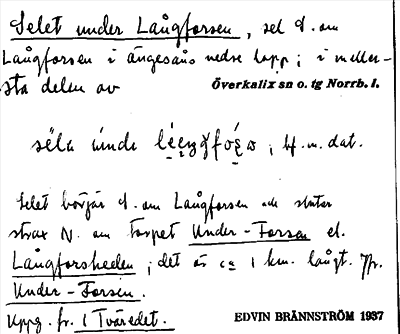 Selet under Långforsen, sel S. om
Långforsen i ängesåns nedre lopp; i meller-
sta delen av
Överkalix sn o. tg Norrb. l.
sēla ùnde ; bf. m. dat.
Selet börjar S. om Långforsen och slutar
strax N. om torpet Under-Forsen el.
Långforsheden; det är ca 1 km. långt. Jfr.
Under-Forsen.
Uppg. fr. 1 Tväredet.
EDVIN BRÄNNSTRÖM 1937